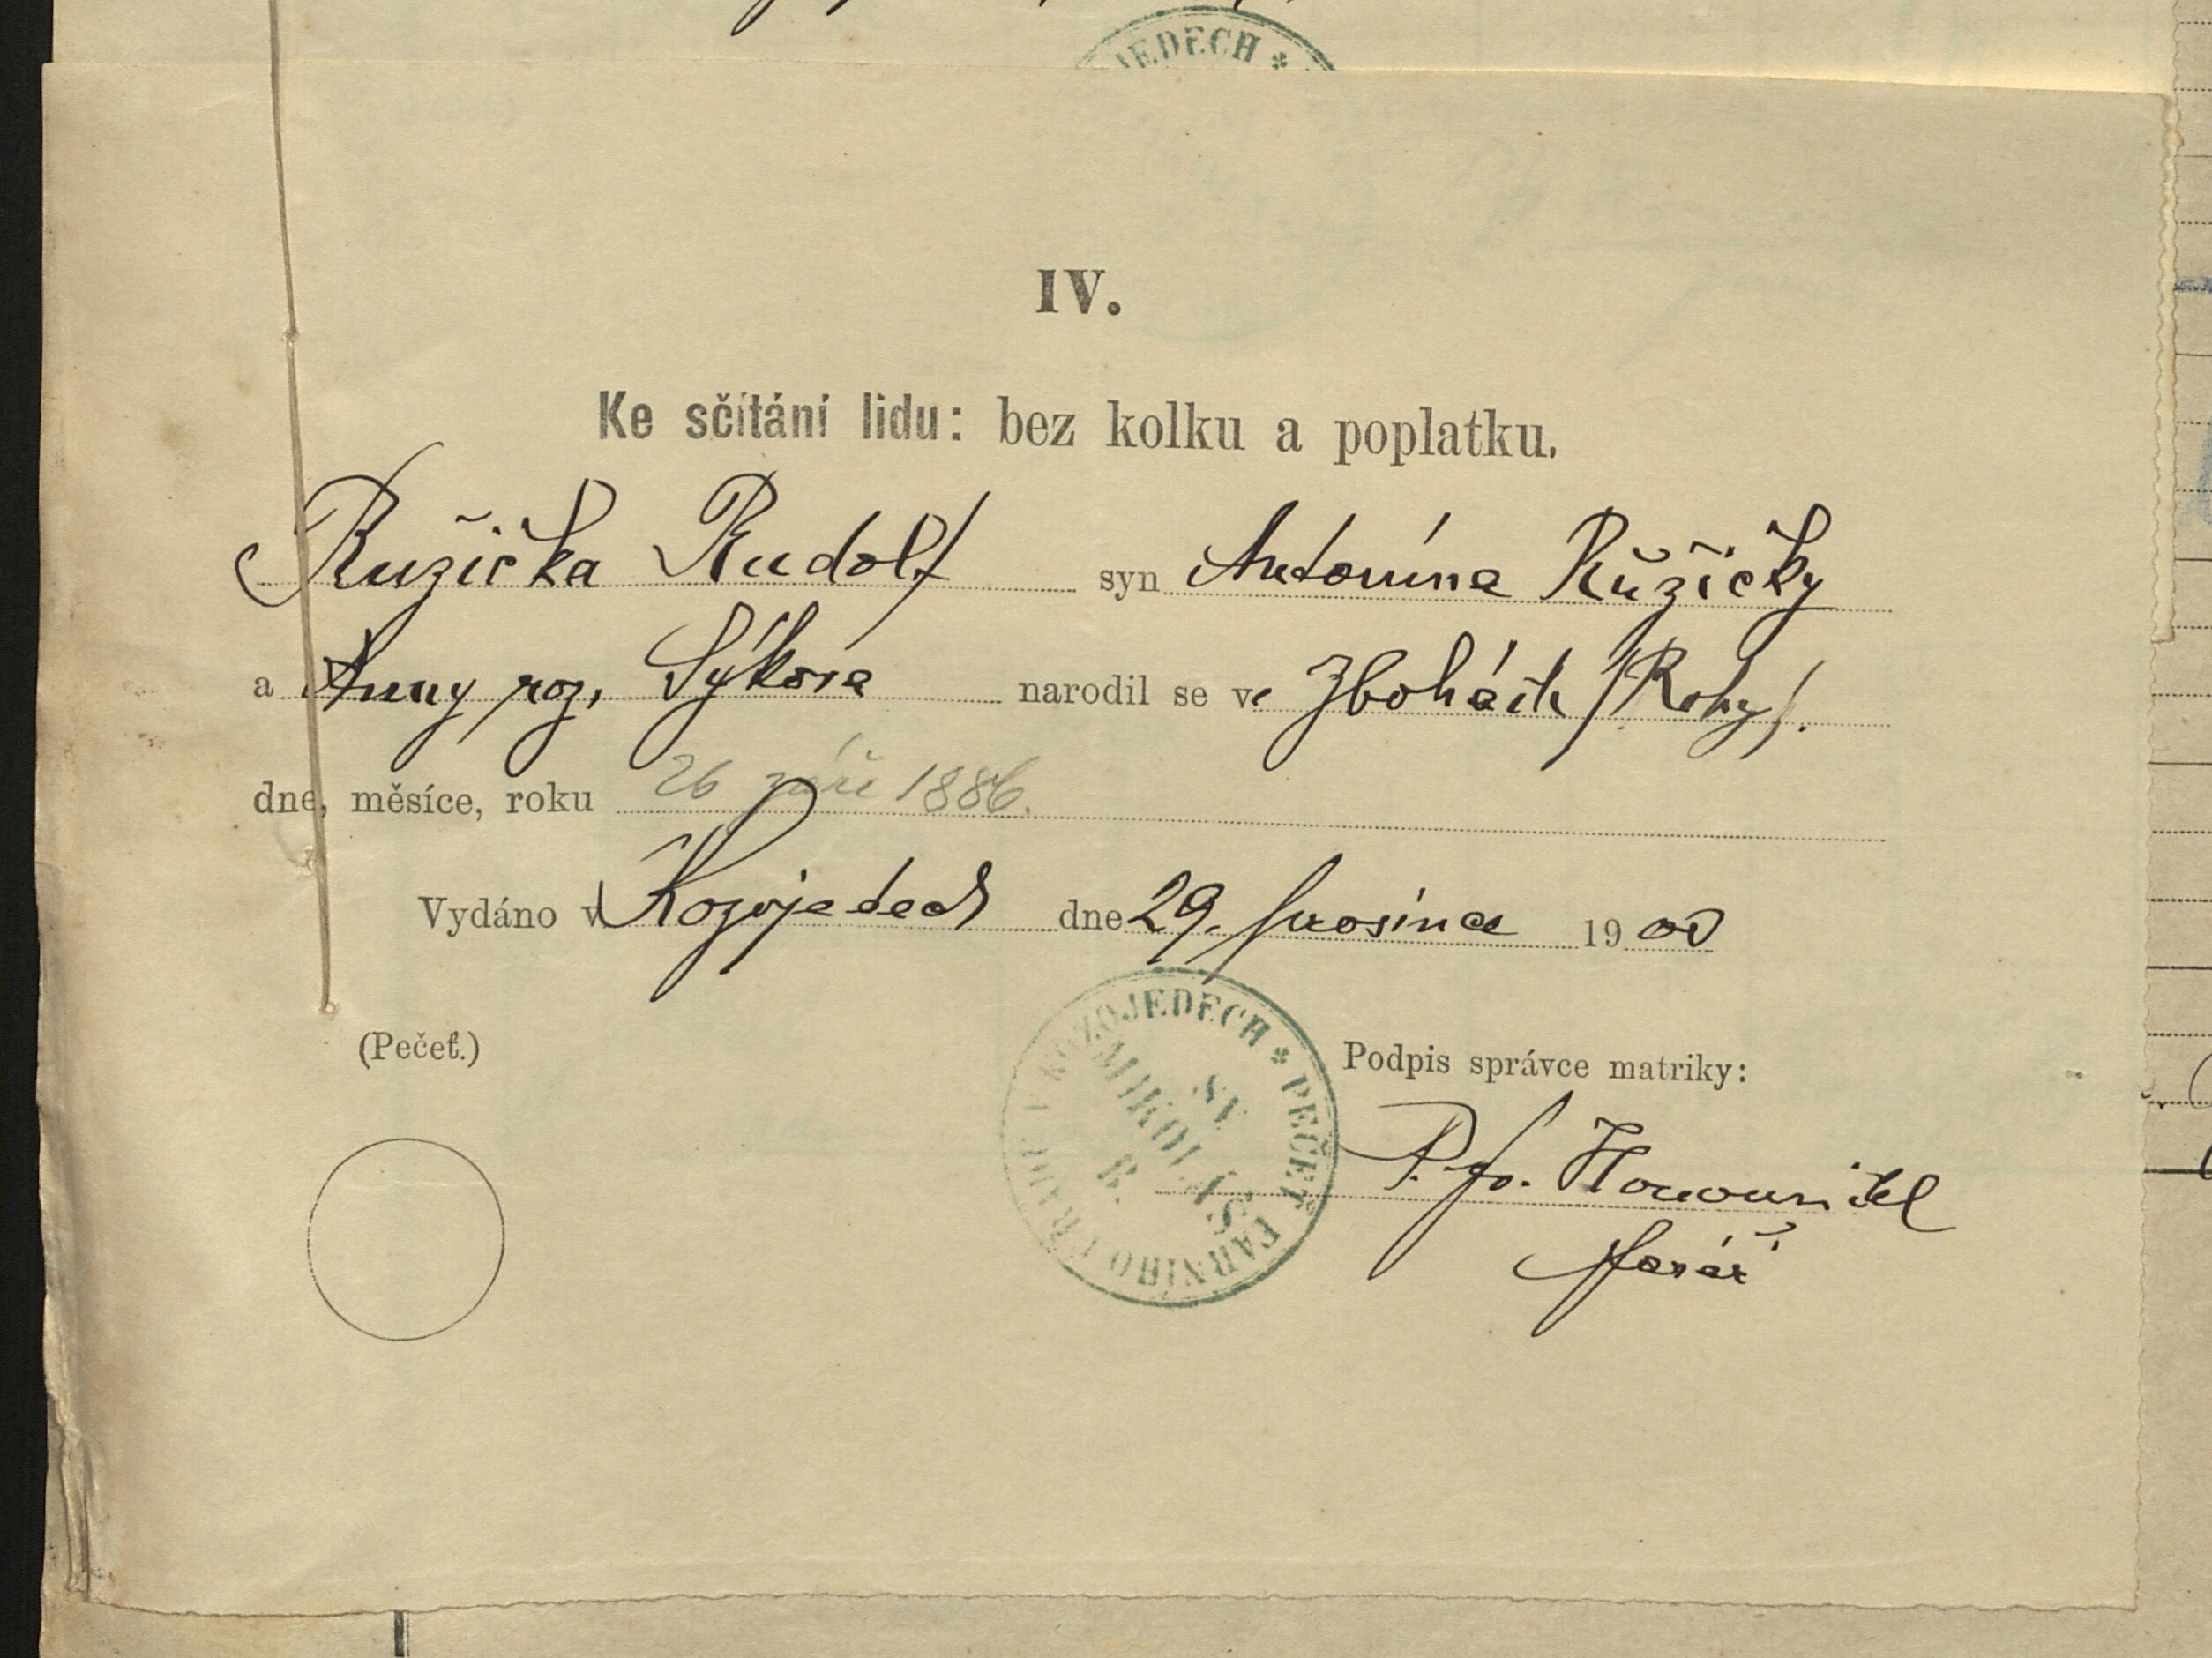 JEDECH *
IV.
Ke sčítání lidu: bez kolku a poplatku.
Růžička Rudolf syn Antonína Růžičky
a Anny roz. Sýkora narodil se ve Zbohách /Rohy/.
dne, měsíce, roku 26 září 1886.
Vydáno v Kozojedech dne 29. prosince 1900
(Pečeť.)
Podpis správce matriky:
PEČEŤ FARNÍHO ÚŘADU V KOZOJEDECH *
SV.
MIKOLÁŠ
B.
P. Fr.
farář